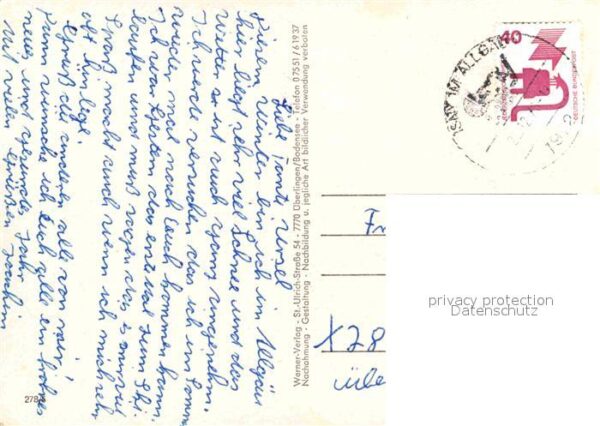 Liebe Tante Ursel
Diesen Winter bin ich im Allgäu
hier liegt ich viel Schnee und das
Wetter ist auch ganz
Ich werde versuchen das ich im Sommer
wieder mal nach Euch kommen kann.
Ich war gestern das erstmal zum Ski-
laufen und muß sagen das es mir viel
Spass macht auch wenn ich mich sehr
oft hin lege.
Grüß die anderen alle von mir,
Dann wünsche ich Euch alle ein frohes
neues und gesundes Jahr
mit vielen Grüßen Joachim
278
Werner-Verlag - St.-Ulrich-Straße 54 - 7770 Überlingen/Bodensee - Telefon 07551/61937
Nachahmung - Gestaltung - Nachbildung u. jegliche Art bildlicher Verwendung verboten
ISNY IM ALLGÄU
40
DEUTSCHE BUNDESPOST
Fr
X28
privacy protection
Datenschutz